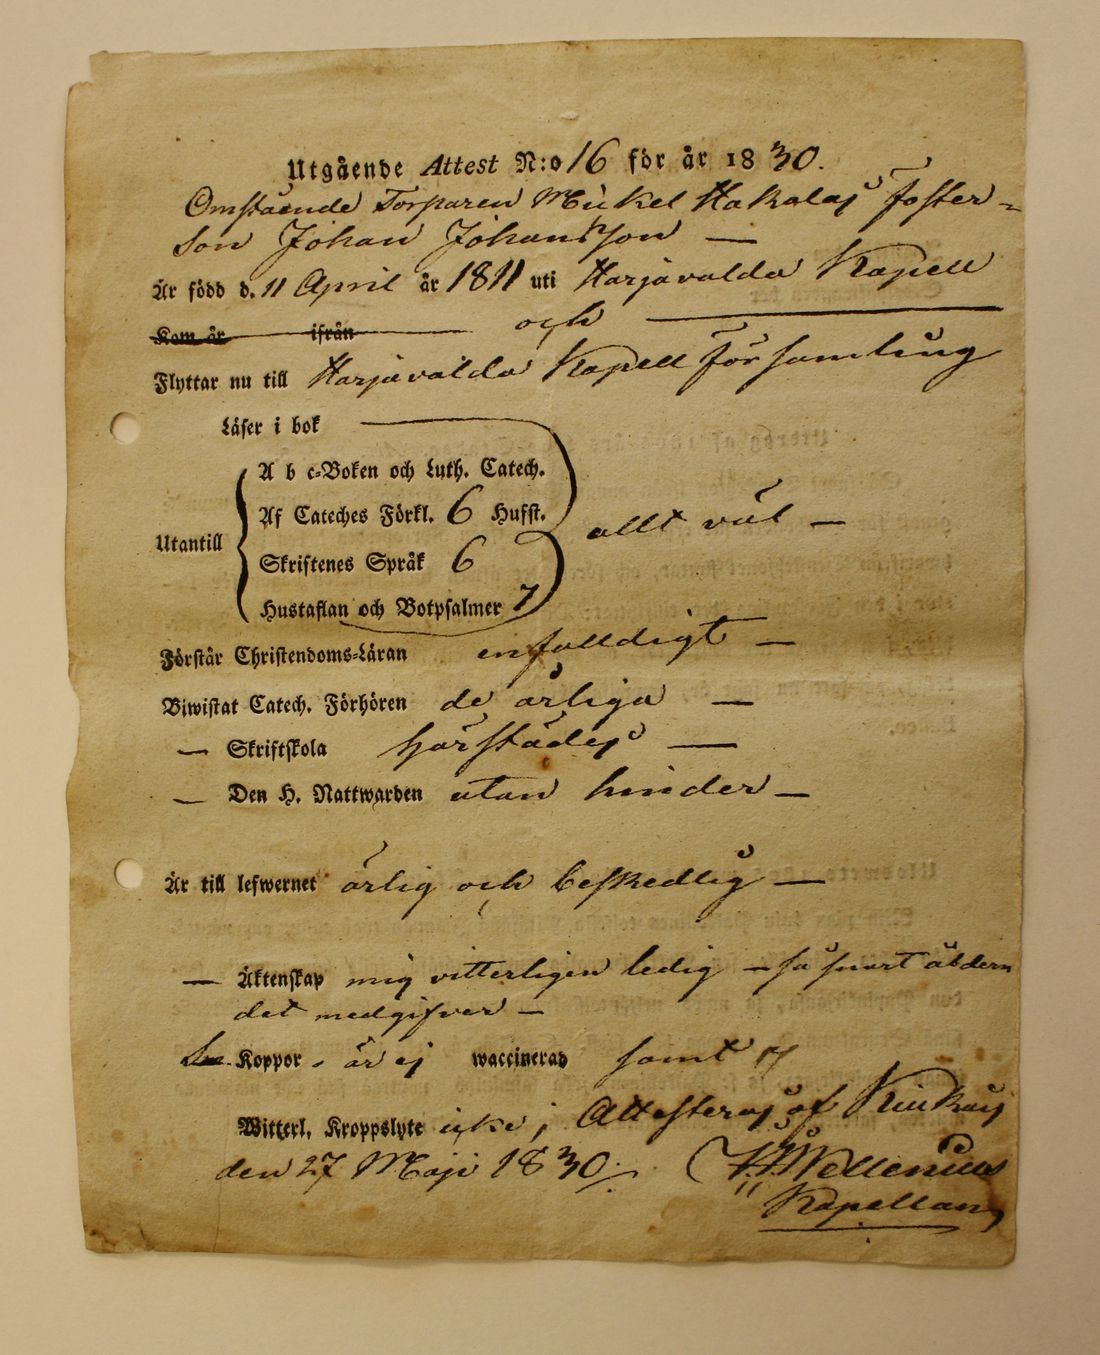 Utgående Attest N:o 16 för år 1830.
Omstående Torparen Mickel Hakalas foster-
son Johan Johansson —
Är född d. 11 April år 1811 uti Harjavalda Kapell
Kom år ifrån och —
Flyttar nu till Harjavalda Kapell församling
Läser i bok
A b c-Boken och Luth. Catech.
Af Cateches Förkl. 6 Hufst.
allt väl —
Utantill
Skriftenes Språk 6
Hustaflan och Botpsalmer 7
Förstår Christendoms-Läran enfalldigt —
Biwistat Catech. Förhören de årliga —
— Skriftskola härstädes —
— Den H. Nattwarden utan hinder —
Är till lefwernet ärlig och beskedlig —
— Äktenskap mig vitterligen ledig — så snart åldern
det medgifver —
Koppor är ej waccinerad samt
Witterl. Kroppslyte icke; Attesteras af Kiukais
den 27 Maji 1830.
Wellenius
Kapellan